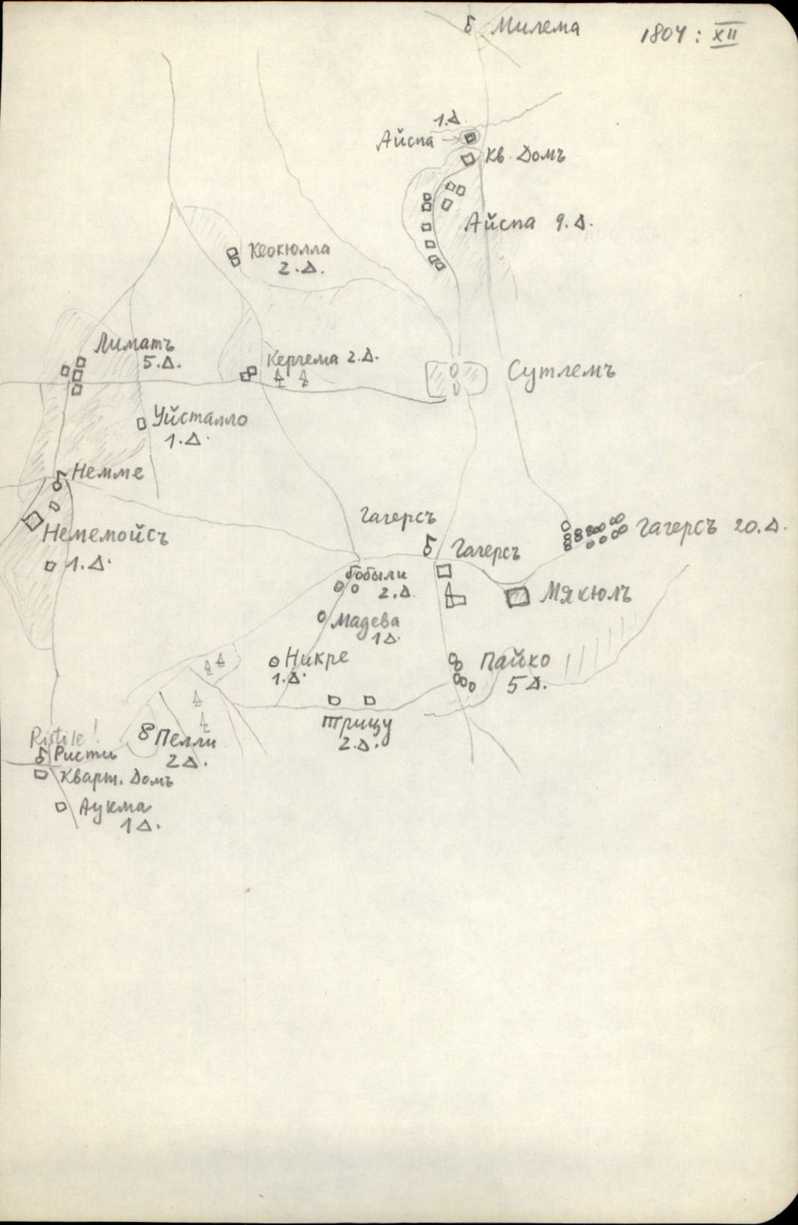 Милема
1807: XII
1.Д.
Айспа
Кв. Домъ
Айспа 9.Д.
Кеокюлла
2.Д.
Лиматъ
5.Д.
Кергема 2.Д.
Сутлемъ
Уйсталло
1.Д.
Немме
Немемойсъ
1.Д.
Гагерсъ
Гагерсъ
Гагерсъ 20.Д.
Бобыли
2.Д.
Мякюлъ
Мадева
1Д.
Никре
1.Д.
Пайко
5Д.
Трицу
2.Д.
Ristile!
Ристи
Кварт. Домъ
Пелли
2Д.
Аукма
1Д.